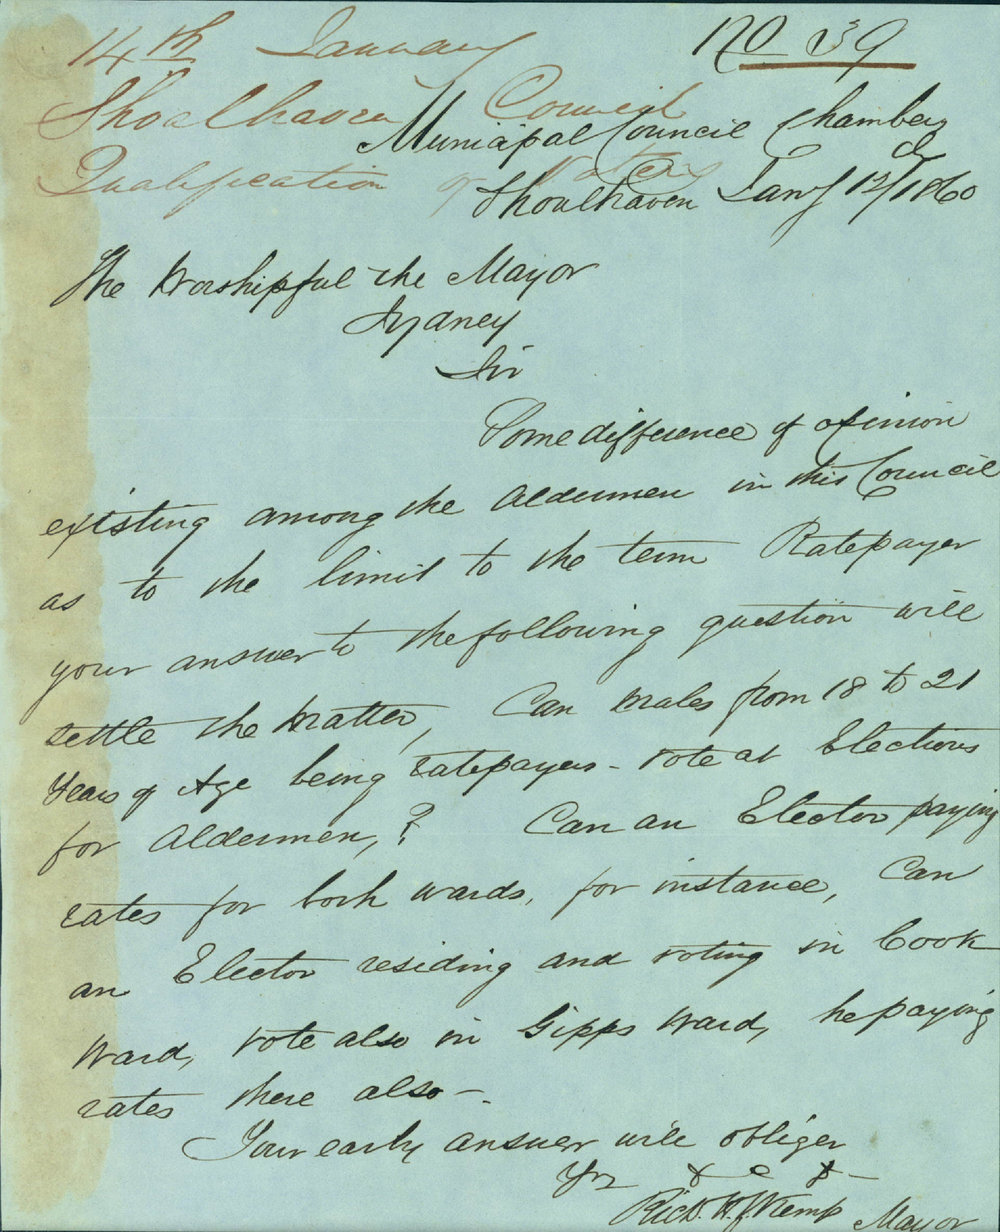 14th January No 39
Shoalhaven Council
Municipal Council Chambers
Qualification of Voters
Shoalhaven Jany 12/1860
The Worshipful the Mayor
Sydney
Sir
Some difference of opinion
existing among the Aldermen in this Council
as to the limit to the term Ratepayer
your answer to the following question will
settle the matter, Can males from 18 to 21
Years of Age being ratepayers - vote at Elections
for Aldermen,? Can an Elector paying
rates for both wards, for instance, Can
an Elector residing and voting in Cook
Ward, vote also in Gipps Ward, he paying
rates there also -.
Your early answer will obliger
Yrs &c &
Richd. Kemp Mayor